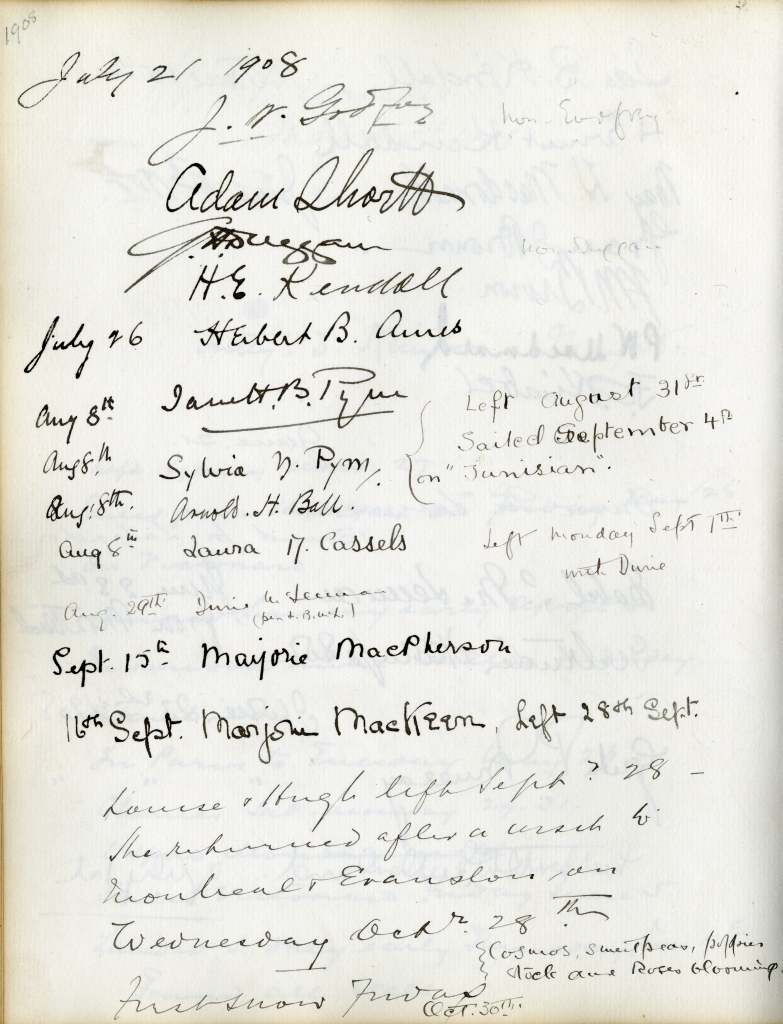 1908
July 21 1908
J. W. Godfrey
Adam Shortt
G. H. Duggan
H. E. Kendall
July 26 Herbert B. Ames
Aug 8th B. Pym
Left August 31st
Sailed September 4th
on "Tunisian".
Aug 8th Sylvia N. Pym
Aug. 8th. Arnold. H. Ball
Aug 8th Laura M. Cassels
Left Monday Sept 7th
with
Aug. 29th
Sept. 15th Marjorie MacPherson
16th Sept. Marjorie MacKeen, Left 28th Sept.
Louise & Hugh left Sept. 28 –
She returned after a visit to
Montreal & Evanston, on
Wednesday Octr. 28th
{Cosmos, sweetpeas, poppies
stock and Roses blooming.
First snow Friday
Oct. 30th.